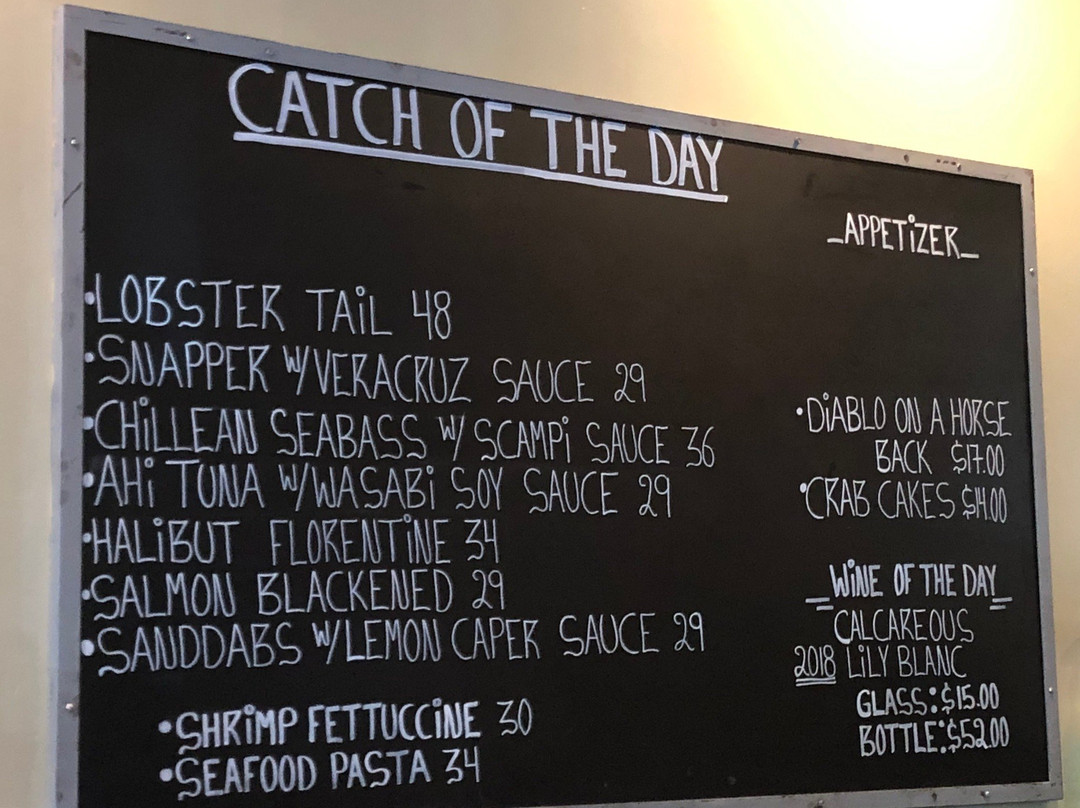 CATCH OF THE DAY
•LOBSTER TAiL 48
•SNAPPER W/VERACRUZ SAUCE 29
•CHiLLEAN SEABASS W/ SCAMPi SAUCE 36
•AHi TUNA W/WASABi SOY SAUCE 29
•HALiBUT FLORENTiNE 34
•SALMON BLACKENED 29
•SANDDABS W/LEMON CAPER SAUCE 29
•SHRiMP FETTUCCiNE 30
•SEAFOOD PASTA 34
_APPETiZER_
•DiABLO ON A HORSE
BACK $17.00
•CRAB CAKES $14.00
_WiNE OF THE DAY_
CALCAREOUS
2018 LiLY BLANC
GLASS:$15.00
BOTTLE:$52.00